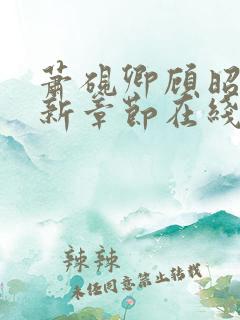 萧砚卿顾昭
新章节在线
辣辣
未经同意禁止转载